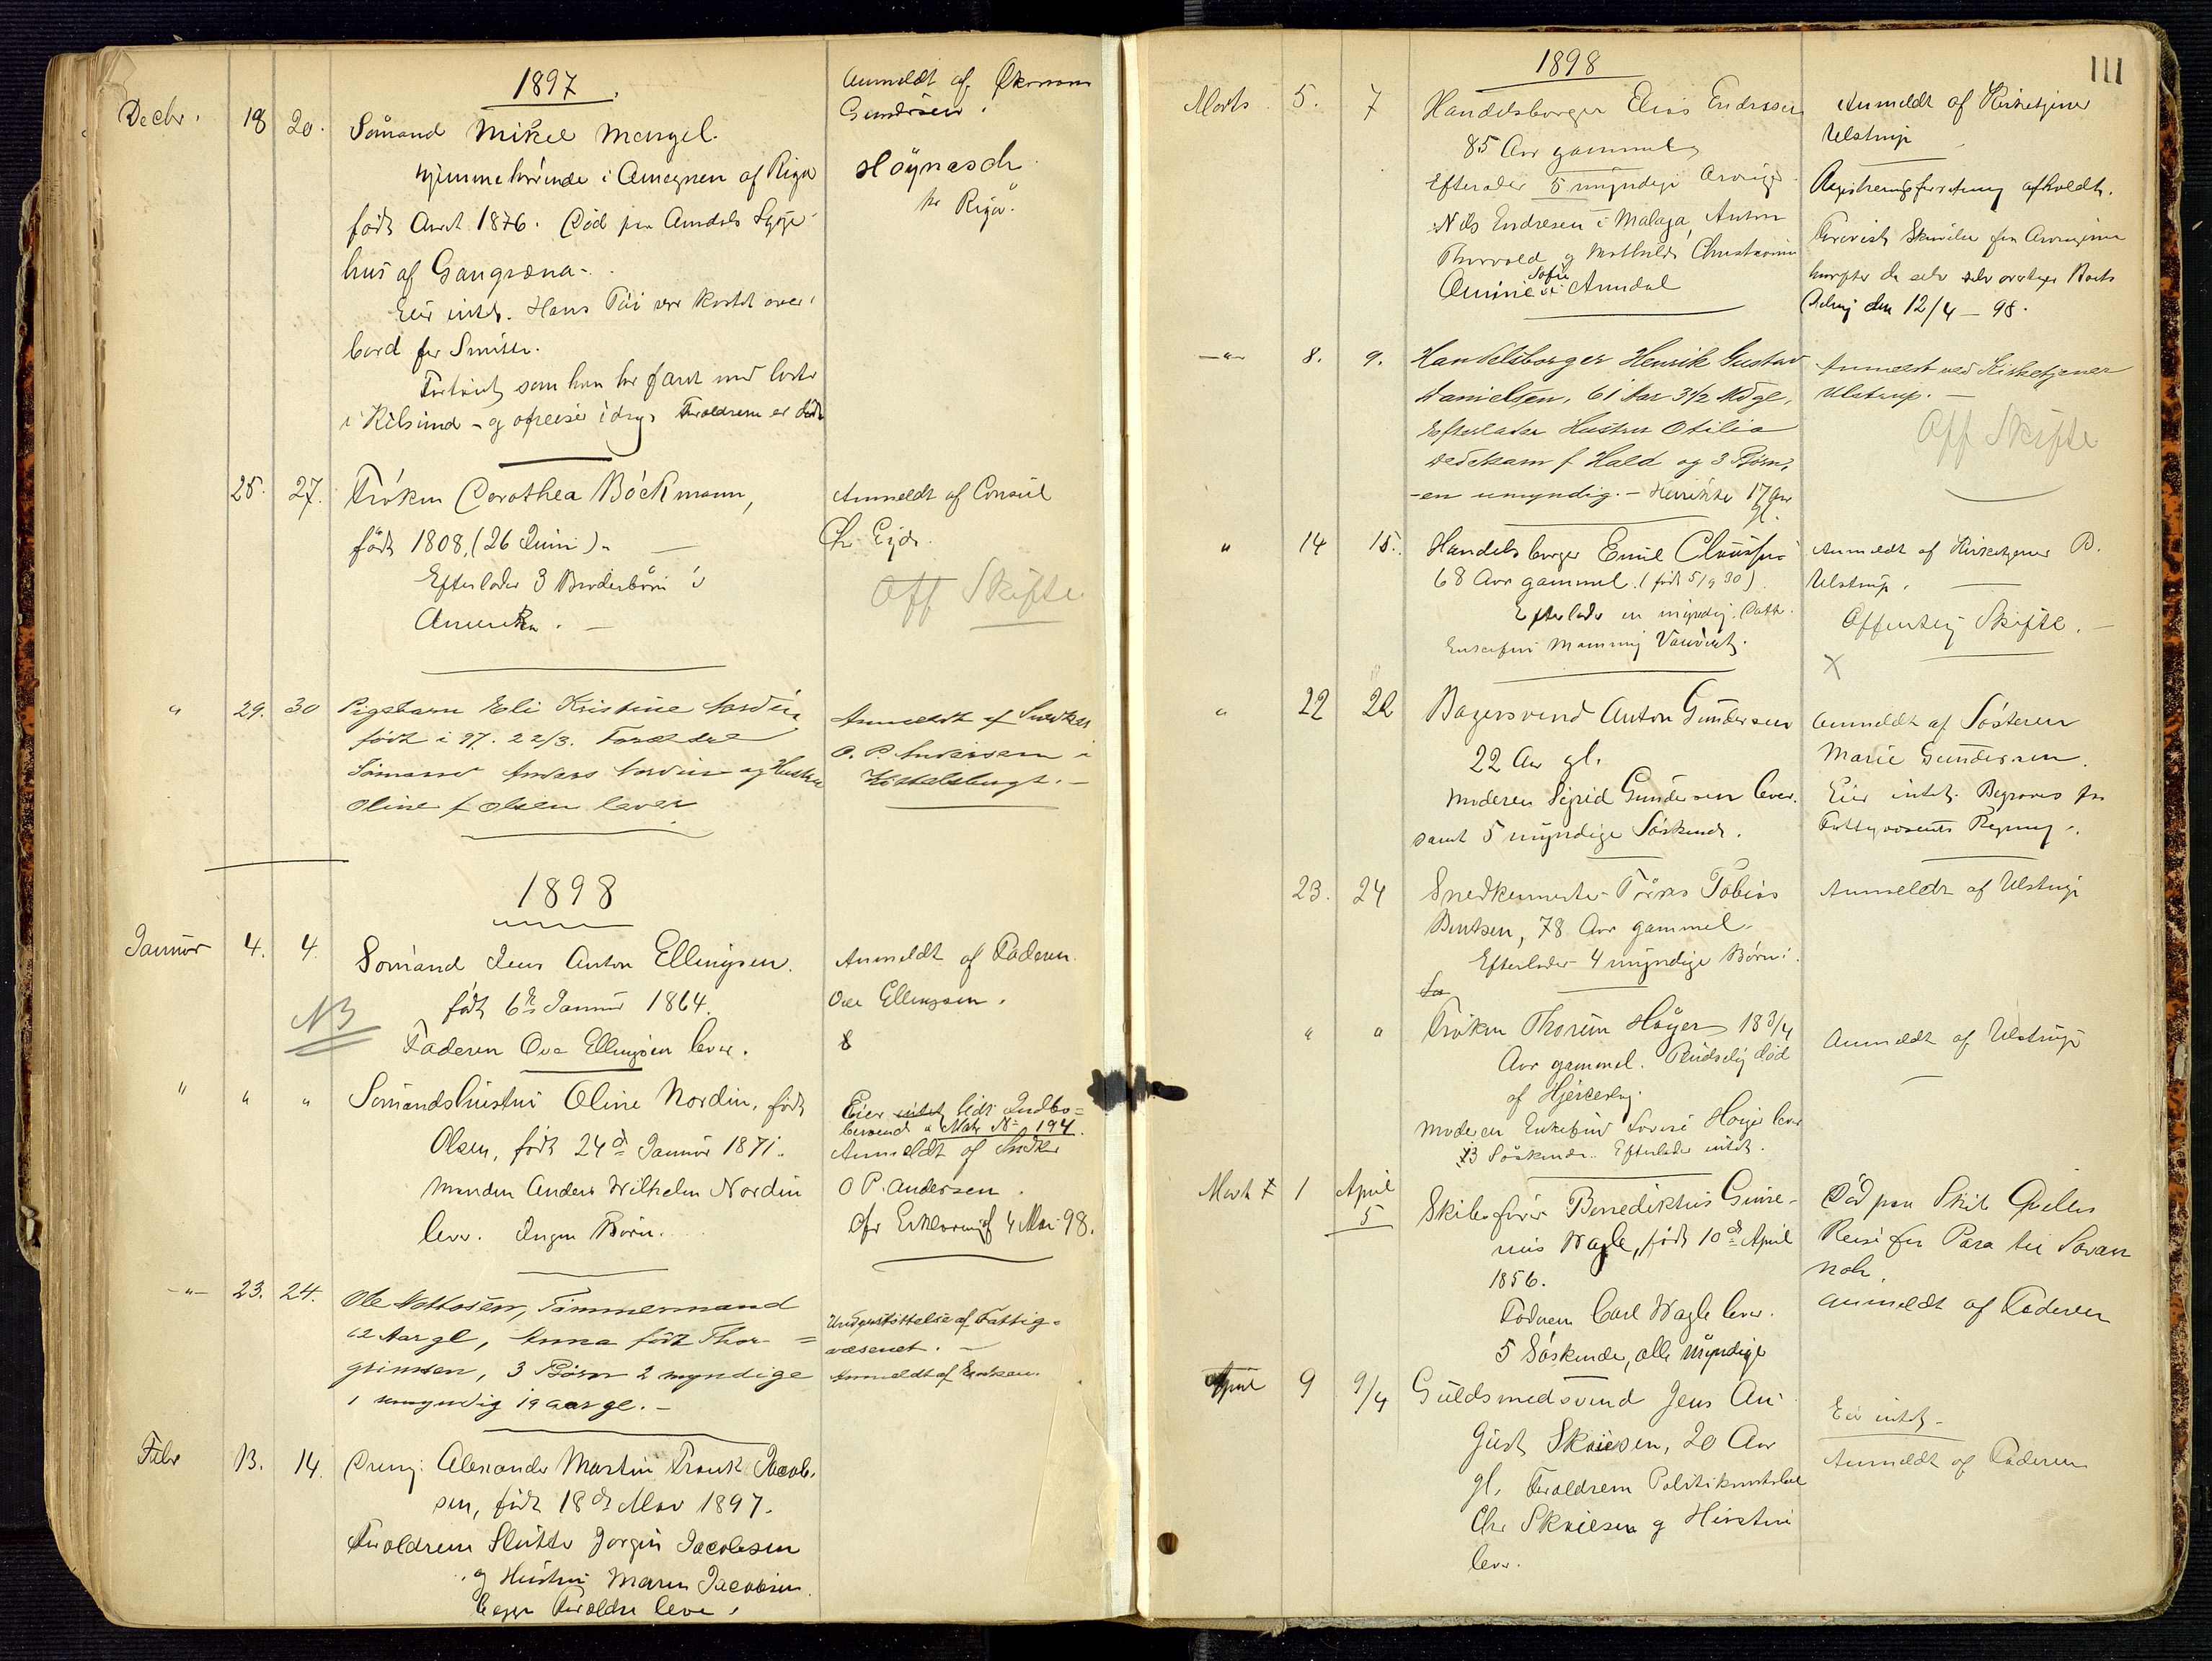 1897
Decbr. 18 20. Sømand Mikel Mangel.
hjemmehørende i Omegnen af Riga
født Aaret 1876. Død paa Arendals Syge-
hus af Gangræna.
Eier intet. Hans Tøi var kastet over-
bord før
som han har faret med
i Kilsund - og afreiser idag. Forældrene er døde
Anmeldt af Økonom
Gundersen.
Höynasch
pr Riga.
25. 27. Frøken Dorothea Böckmann,
født 1808. (26 Juni).
Efterlader 3 Broderbørn i
Amerika.
Anmeldt af Consul
Chr. Eyde.
Off Skifte
" 29. 30 Pigebarn Eli Kristine Nordin,
født i 97. 22/3. Forældre
Sømand Anders Nordin og Hustru
Oline f Olsen lever.
Anmeldt af Snedker
O. P. Andersen i
Kittelsbugt.
1898
Januar 4. 4. Sømand Jens Anton Ellingsen.
født 6te Januar 1864.
NB
Faderen Ove Ellingsen lever.
Anmeldt af Faderen
Ove Ellingsen.
" " " Sømandshustru Oline Nordin, født
Olsen, født 24de Januar 1871.
Manden Anders Wilhelm Nordin
lever. Ingen Børn.
Eier intet lidt Indbo-
løsøre i Matr No 194.
Anmeldt af Snedker
O P. Andersen.
Ofr Erklæring af 4 Mai 98.
-"- 23. 24. Ole Nottosen, Tømmermand
62 Aar gl, Anna født Thor-
grimsen, 3 Børn 2 myndige
1 umyndig 19 aar gl.
Understøttelse af Fattig-
væsenet.
Anmeldt af Enken.
Febr 13. 14. Dreng: Alexander Martin Frank Jacob-
sen, født 18de Mar 1897.
Forældrene Slutter Jørgen Jacobsen
og Hustru Maren Jacobsen.
begge Forældre lever.
111
1898
Marts 5. 7 Handelsborger Elias Endresen
85 Aar gammel
Efterlader 5 myndige Arvinger
Nils Endresen i Malaga, Anton
Thorvald og Mathilde Christiane
Amine Sofie i Arendal
Anmeldt af Kirketjener
Ulstrup
Registreringsforretning afholdt.
Skrivelse fra Arvingerne
hvorefter de selv selv overtager Boets
Deling den 12/4 - 98.
-"- 8. 9. Handelsborger Henrik Gustav
Danielsen, 61 Aar 3 1/2 Md gl,
Efterlader Hustru Otilia
f Hald og 3 Børn,
-en umyndig. - Henrikke 17 Aar
gl.
Anmeldt ved Kirketjener
Ulstrup. -
Off Skifte
" 14 15. Handelsborger Emil Claussen
68 Aar gammel. (født 5/9 30)
Efterlader en myndig Datter
Enkefru
Anmeldt af Kirketjener B.
Ulstrup.
Offentlig Skifte.
X
" 22 22 Bagersvend Anton Gundersen
22 Aar gl.
Moderen Sigrid Gundersen lever.
samt 5 myndige Søskende.
Anmeldt af Søsteren
Marie Gundersen.
Eier intet. Begraves paa
Fattigvæsenets Regning.
23. 24 Snedkermester Tønnes Tobias
Bentsen, 78 Aar gammel.
Efterlader 4 myndige Børn.
Anmeldt af Ulstrup
" " Frøken Thorun Høyer 18 3/4
Aar gammel. Pludselig død
af Hjerteslag.
Moderen Enkefru Lovise Høyer lever
13 Søskende. Efterlader intet.
Anmeldt af Ulstrup
Marts 1 April
5 Skibsfører Benediktus
Wagle, født 10de April
1856.
Faderen Carl Wagle lever.
5 Søskende, alle myndige
Død paa Skib Quellen
Reise fra Para til Savan
nah.
Anmeldt af Faderen
April 9 9/4 Guldsmedsvend Jens Au-
gust Skoiesen, 20 Aar
gl. Forældrene Politikonstabel
Chr Skoiesen og Hustru
lever.
Eier intet -
Anmeldt af Faderen